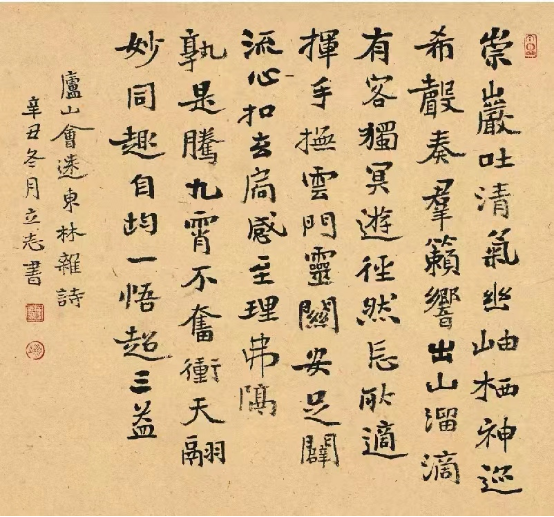 崇巖吐清氣幽岫栖神迹
希聲奏羣籟響出山溜滴
有客獨冥遊徑然忘所適
揮手撫雲門靈關安足闢
流心扣玄扃感至理弗隔
孰是騰九霄不奮衝天翮
妙同趣自均一悟超三益
廬山會遠東林雜詩
辛丑冬月立志書